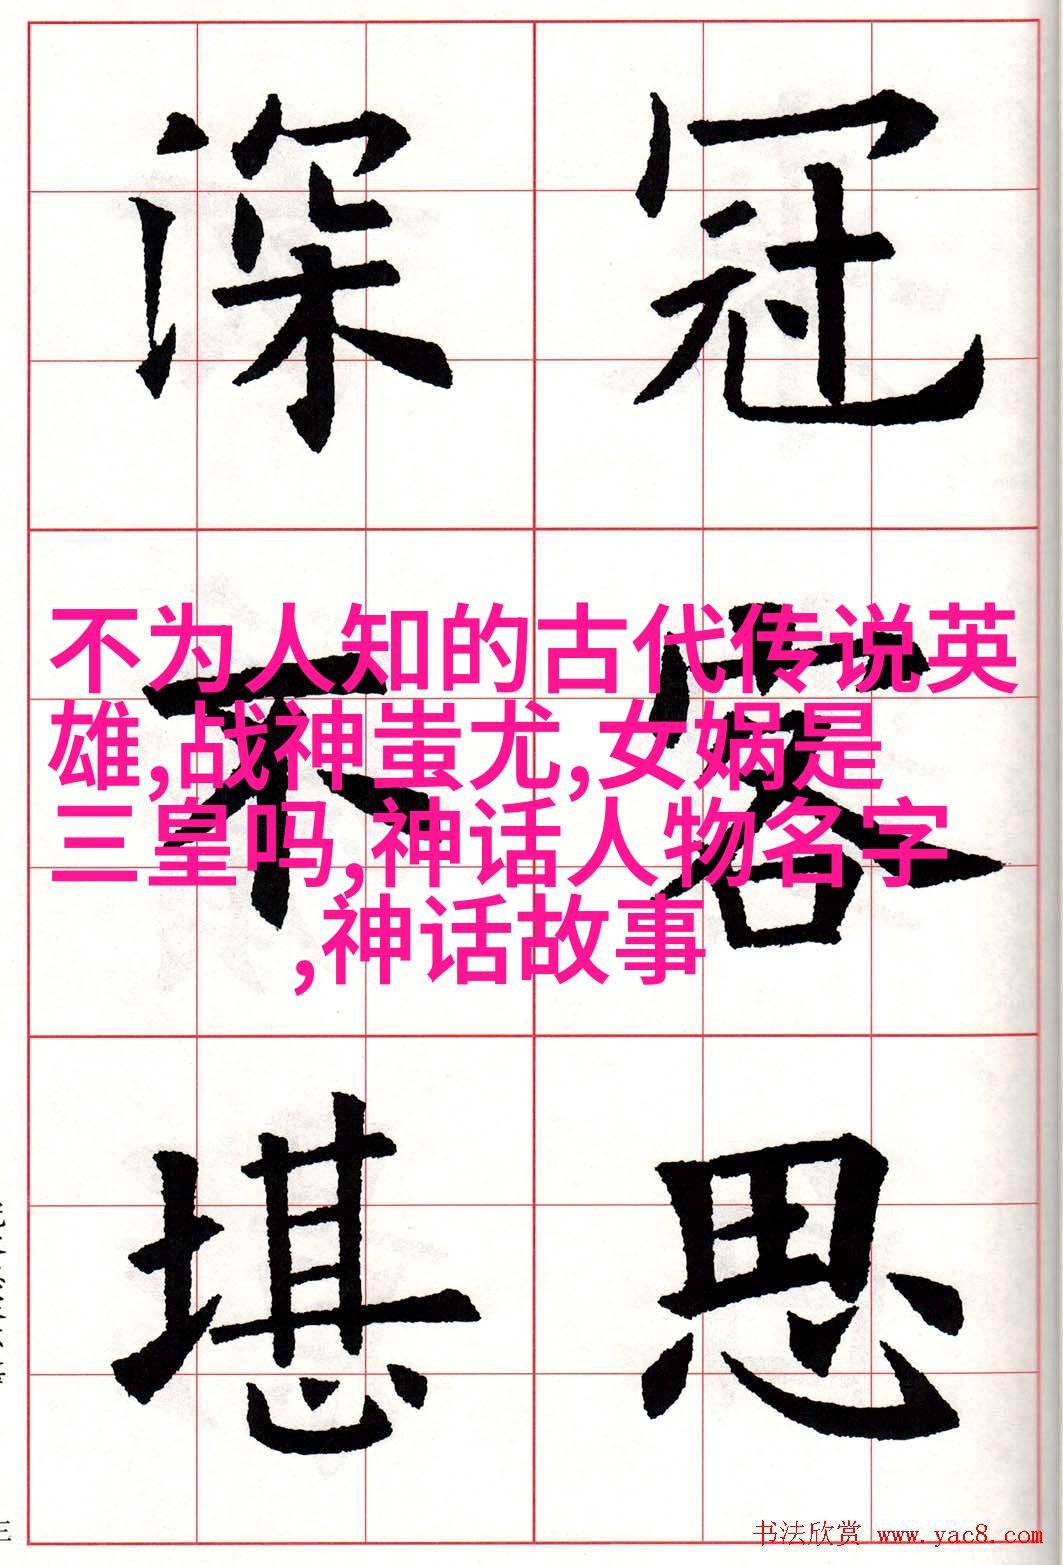 深冠
不容
堪思
不为人知的古代传说英
雄,战神蚩尤,女娲是
三皇吗,神话人物名字
,神话故事
书法欣赏 www.yac8.com